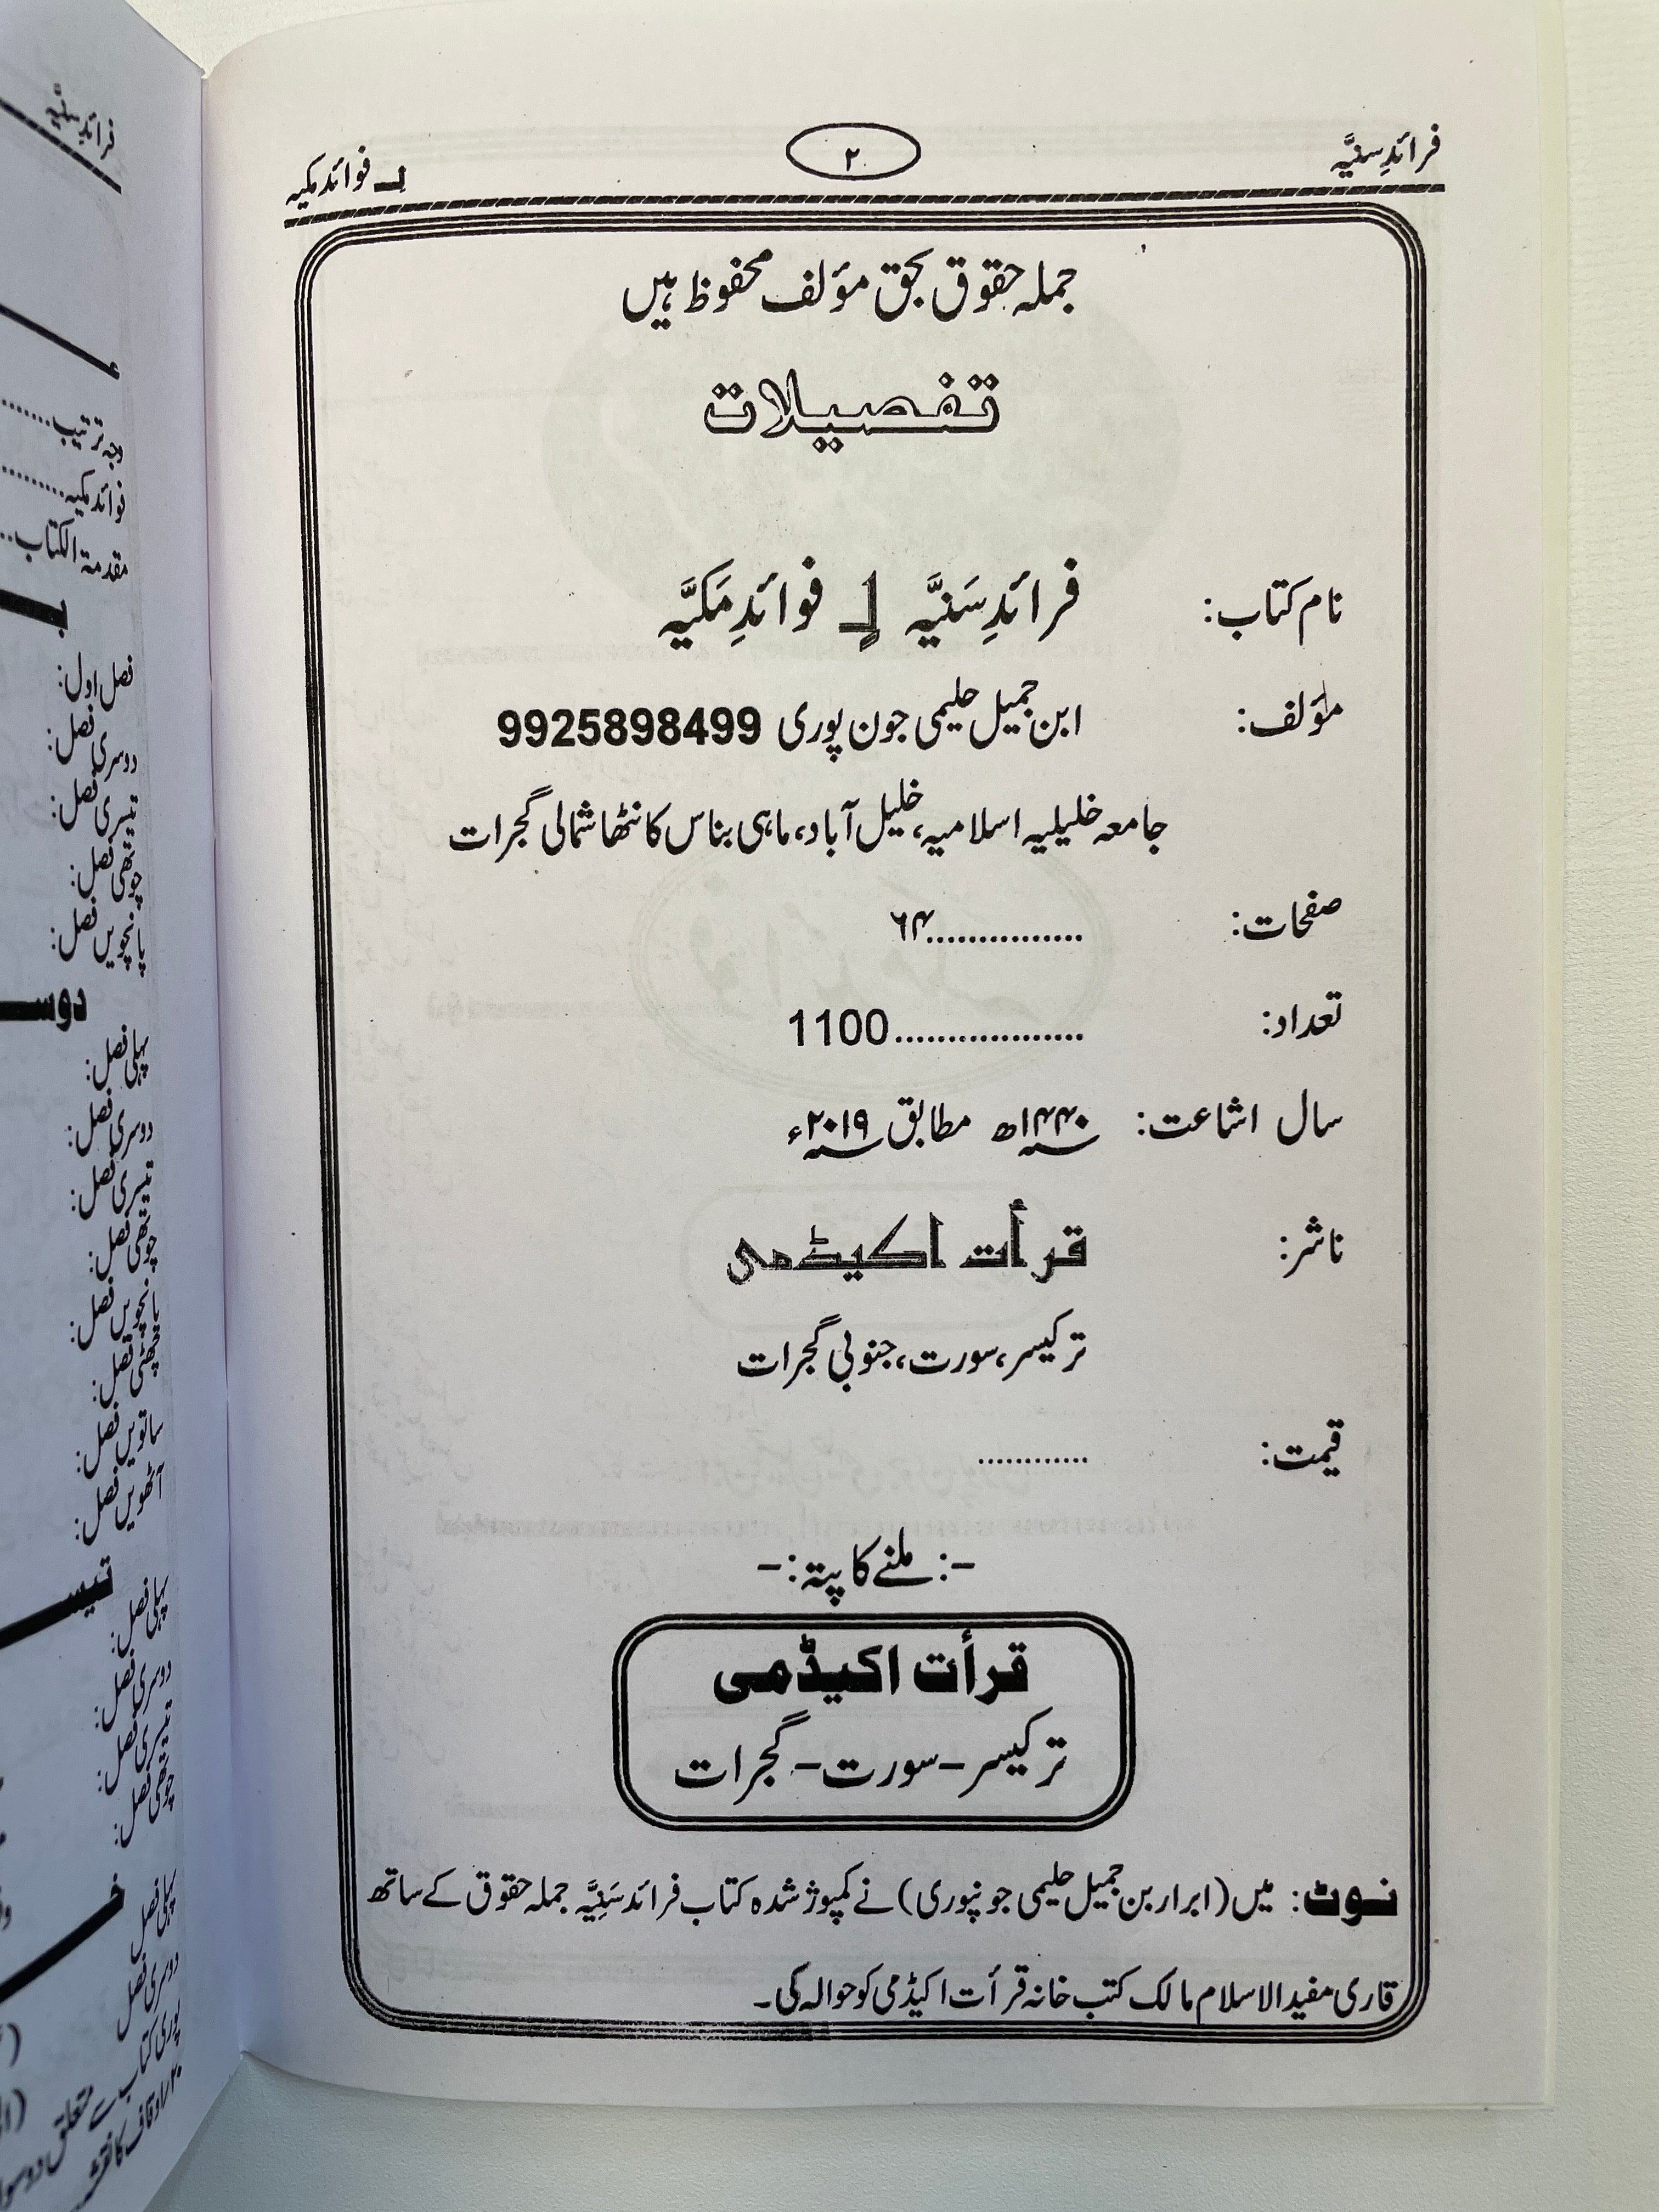 فرائدِ سنیَّہ ۲ لِـ فوائد مکیہ
جملہ حقوق بحق مؤلف محفوظ ہیں
تفصیلات
نام کتاب: فرائدِ سَنیَّہ لِـ فوائدِ مَکیَّہ
مؤلف: ابن جمیل حلیمی جون پوری 9925898499
جامعہ خلیلیہ اسلامیہ، خلیل آباد، ماہی بناس کانٹھا شمالی گجرات
صفحات: ...............۶۴
تعداد: ..................1100
سال اشاعت: ۱۴۴۰ھ مطابق ۲۰۱۹ء
ناشر: قرأت اکیڈمی
ترکیسر، سورت، جنوبی گجرات
قیمت: ...........
-: ملنے کا پتہ :-
قرأت اکیڈمی
ترکیسر - سورت - گجرات
نوٹ: میں (ابرار بن جمیل حلیمی جونپوری) نے کمپوژ شدہ کتاب فرائد سَنِیَّہ جملہ حقوق کے ساتھ
قاری مفید الاسلام مالک کتب خانہ قرأت اکیڈمی کو حوالہ کی۔
فرائدِ سنیَّہ
وجہ ترتیب
فوائد مکیہ
مقدمۃ الکتاب
فصل اول:
دوسری فصل:
تیسری فصل:
چوتھی فصل:
پانچویں فصل:
پہلی فصل:
دوسری فصل:
تیسری فصل:
چوتھی فصل:
پانچویں فصل:
چھٹی فصل:
ساتویں فصل:
آٹھویں فصل:
پہلی فصل:
دوسری فصل:
تیسری فصل:
چوتھی فصل:
پہلی فصل
دوسری فصل
پوری کتاب سے متعلق